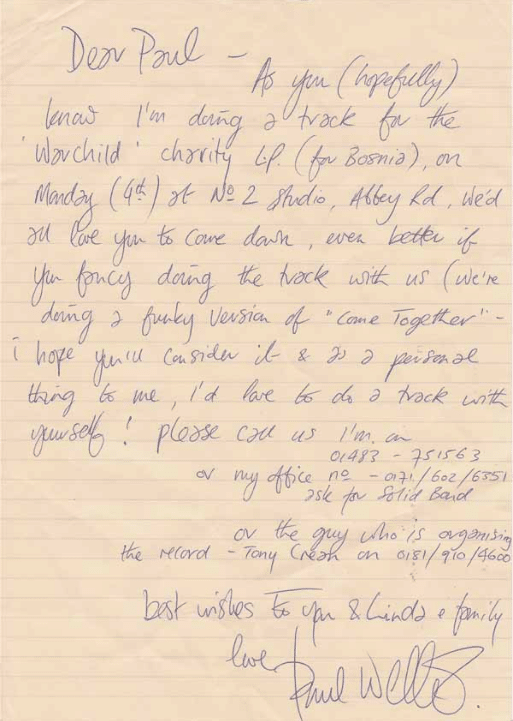 Dear Paul —
As you (hopefully)
know I'm doing a track for the
'Warchild' charity L.P. (for Bosnia), on
Monday (4th) at No 2 studio, Abbey Rd, we'd
all love you to come down, even better if
you fancy doing the track with us (we're
doing a funky version of "Come Together" -
i hope you'll consider it & as a personal
thing to me, I'd love to do a track with
yourself! please call us I'm on
01483 - 751563
or my office no - 0171/602/6351
ask for Solid Bond
or the guy who is organising
the record - Tony Crean on 0181/910/4600
best wishes to you & Linda & family
love
Paul Weller.